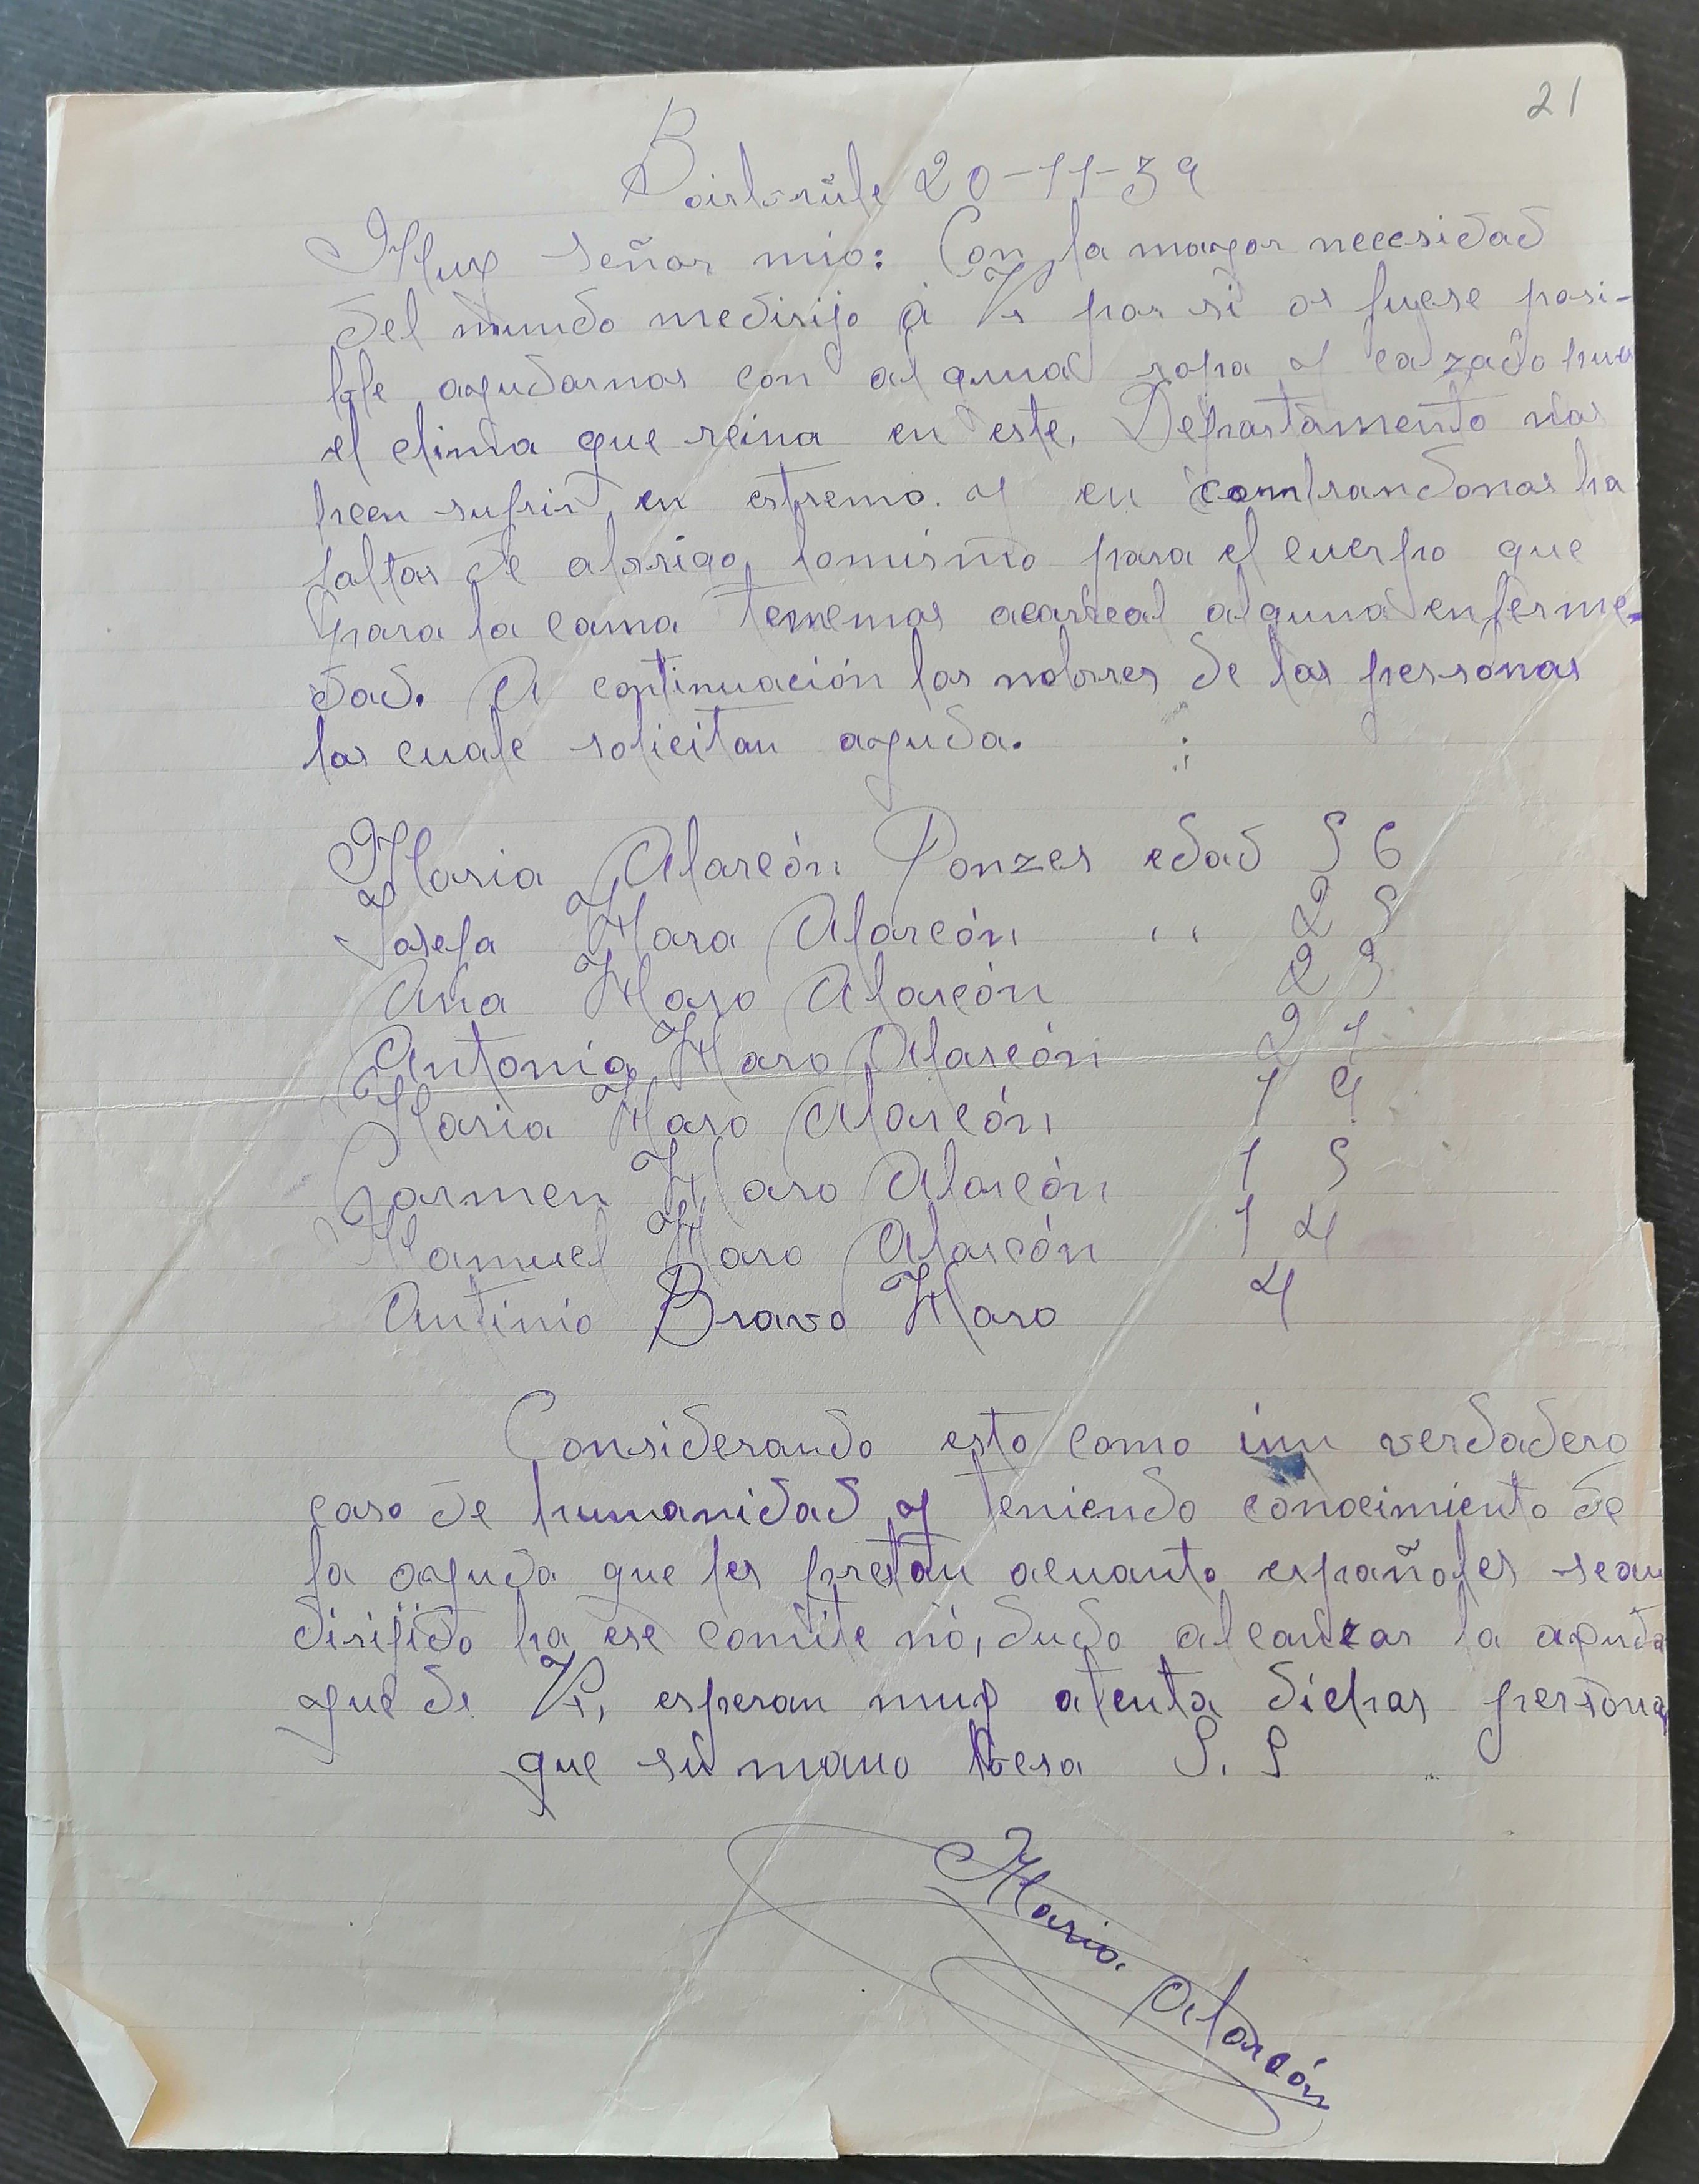 21
20-11-39
Muy señor mio: Con la mayor necesidad
del mundo medirijo á Vs por si os fuese posi-
ble ayudarnos con alguna ropa y calzado pues
el clima que reina en este, Departamento nos
hcen sufrir en estremo. y en contrandonos ha
faltos de abrigo, lomismo para el cuerpo que
para la cama tememos acarreal alguna enferme-
dad. A continuación los nobres de las personas
las cuale solicitan ayuda.
Maria Alarcón Ponzes edad 56
Josefa Haro Alarcón ,, 25
Ana Haro Alarcón 23
Antonia Haro Alarcón 21
Maria Haro Alarcón 19
Carmen Haro Alarcón 15
Manuel Haro Alarcón 14
Antinio Bravo Haro 4
Considerando esto como unn verdadero
caso de humanidad y teniendo conocimiento de
la ayuda que les prestan acuanto españoles sean
dirijido ha ese comite nó, dudo alcanzar la ayuda
que de Vs, esperan muy atenta dichas personas
que su mano besa S. S
Maria Alarcón